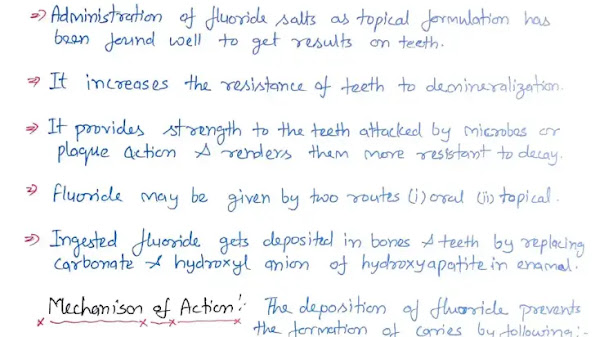 ⇒ Administration of fluoride salts as topical formulation has
been found well to get results on teeth.
⇒ It increases the resistance of teeth to demineralization.
⇒ It provides strength to the teeth attacked by microbes or
plaque action & renders them more resistant to decay.
⇒ Fluoride may be given by two routes (i) oral (ii) topical.
⇒ Ingested fluoride gets deposited in bones & teeth by replacing
carbonate & hydroxyl anion of hydroxyapatite in enamel.
Mechanism of Action:- The deposition of fluoride prevents
the formation of carries by following:-